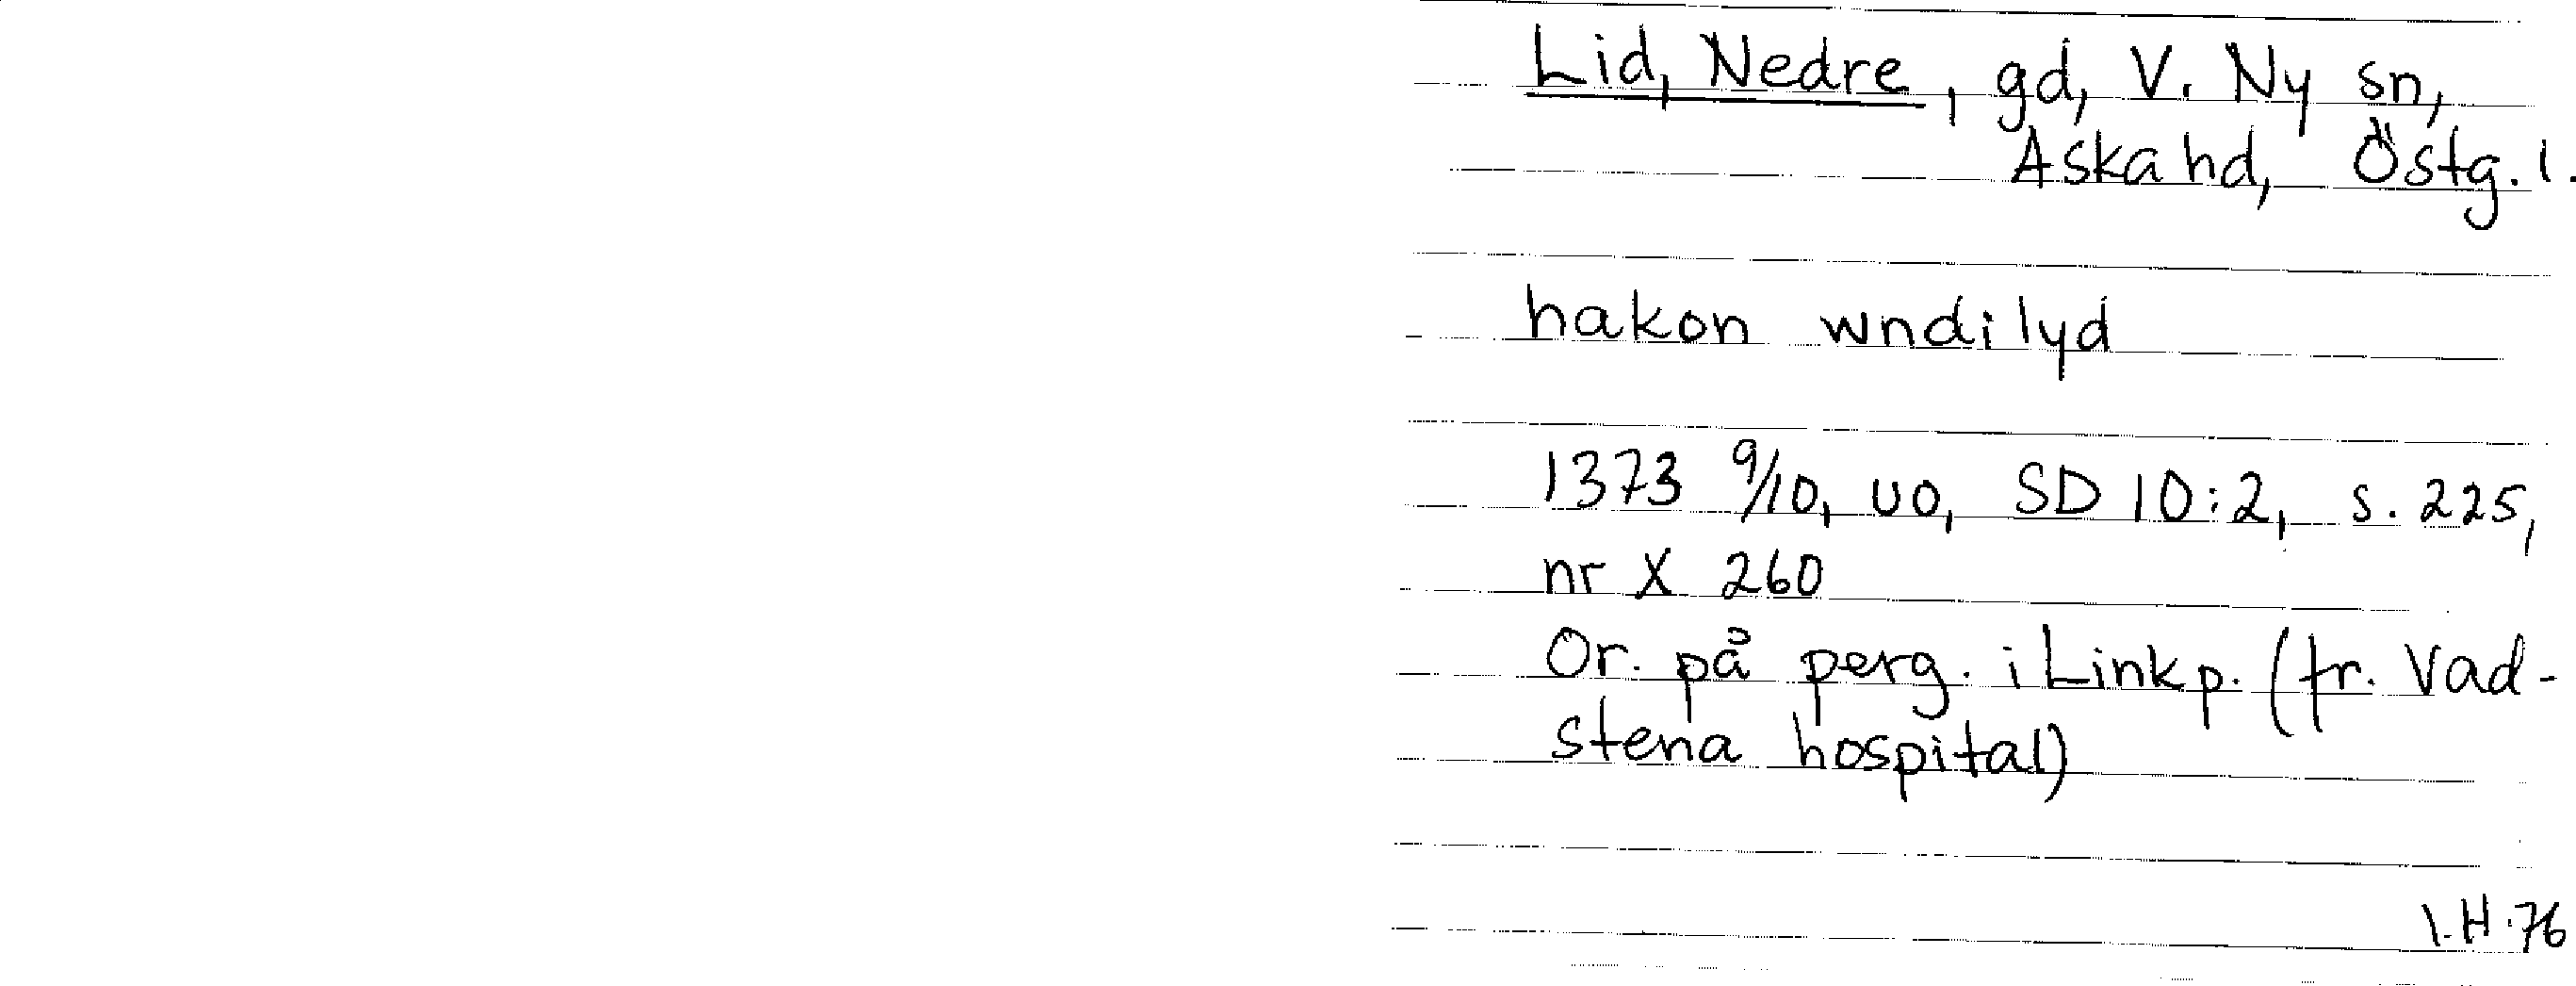 Lid, Nedre, gd, V. Ny sn,
Aska hd, Östg. l.
hakon wndilyd
1373 9/10, uo, SD 10:2, s. 225,
nr X 260
Or. på perg. i Linkp. (fr. Vad-
stena hospital)
I.H.76